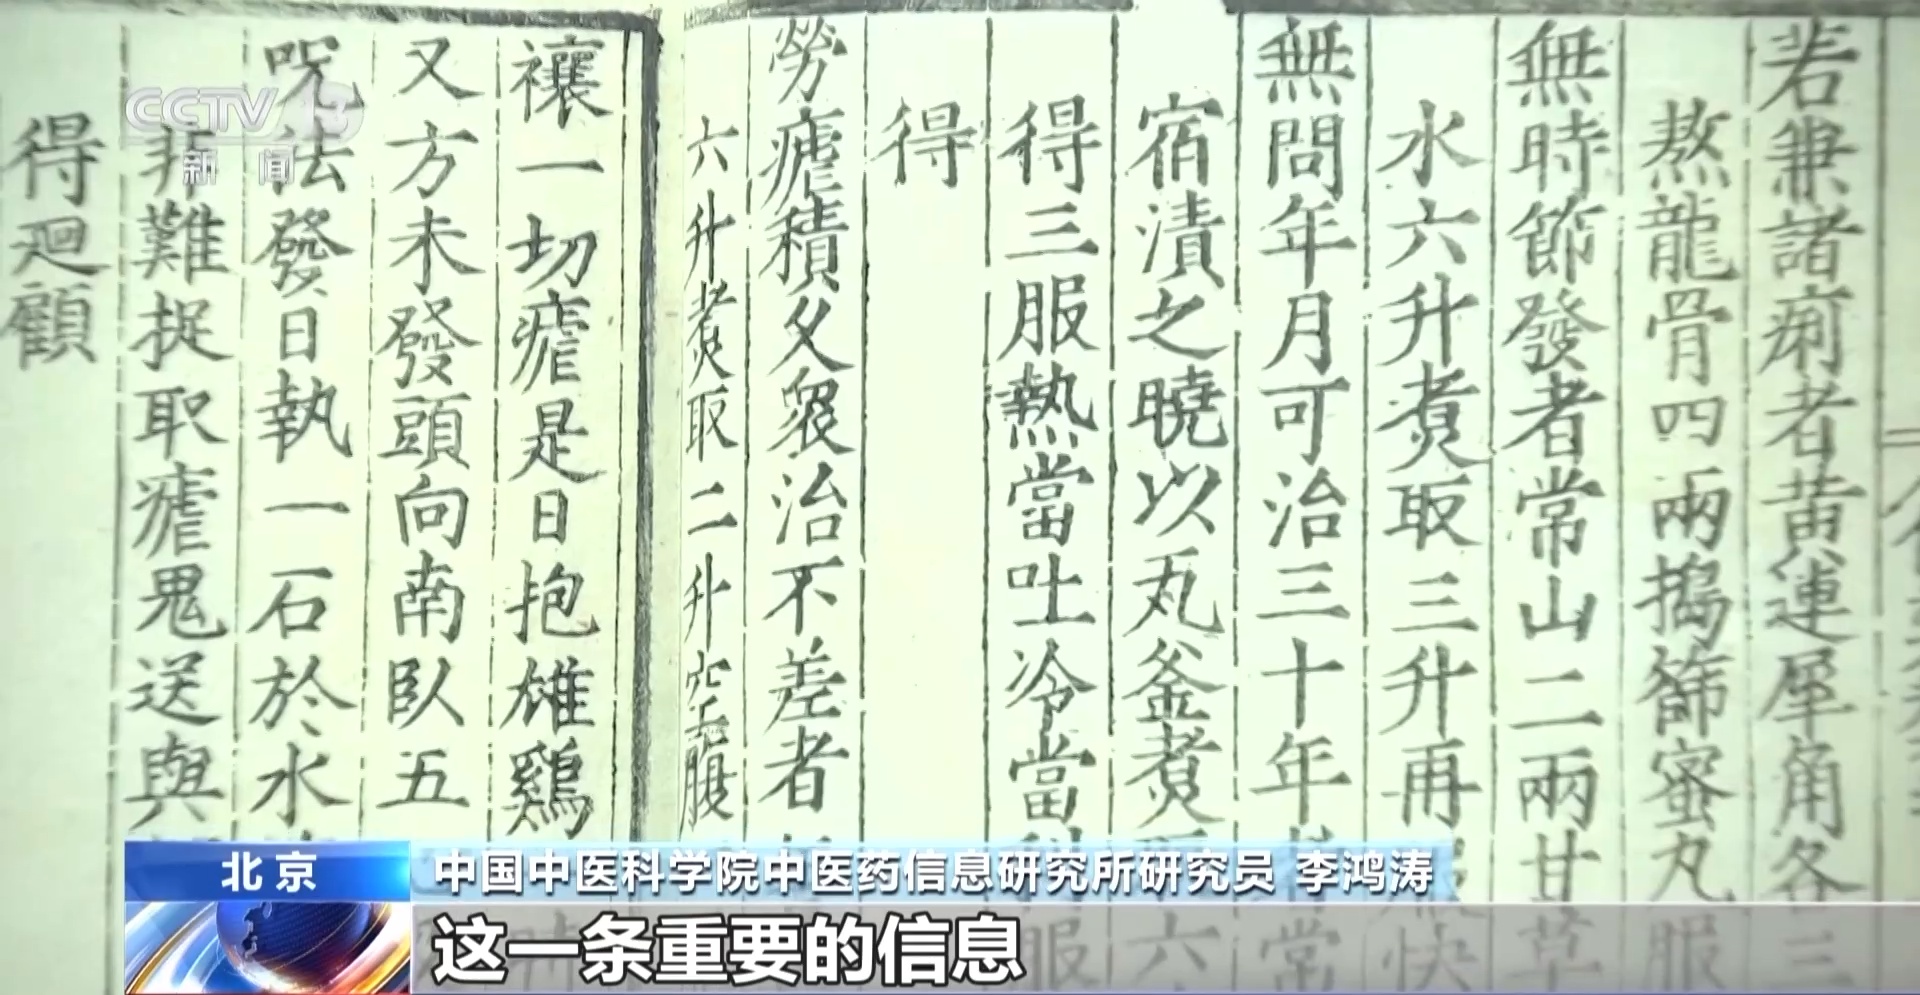 若兼諸痢者黃連犀角各三
熬龍骨四兩搗篩蜜丸服
無時節發者常山二兩甘草
水六升煮取三升再快
無問年月可治三十年者常
宿漬之曉以瓦釜煮取六
得三服熱當吐冷當利服
得
勞瘧積久衆治不差者
六升煮取二升空腹
禳一切瘧是日抱雄鷄
又方未發頭向南臥五
呪法發日執一石於水
非難捉取瘧鬼送與
得廻顧
CCTV 13
新闻
北京
中国中医科学院中医药信息研究所研究员 李鸿涛
这一条重要的信息